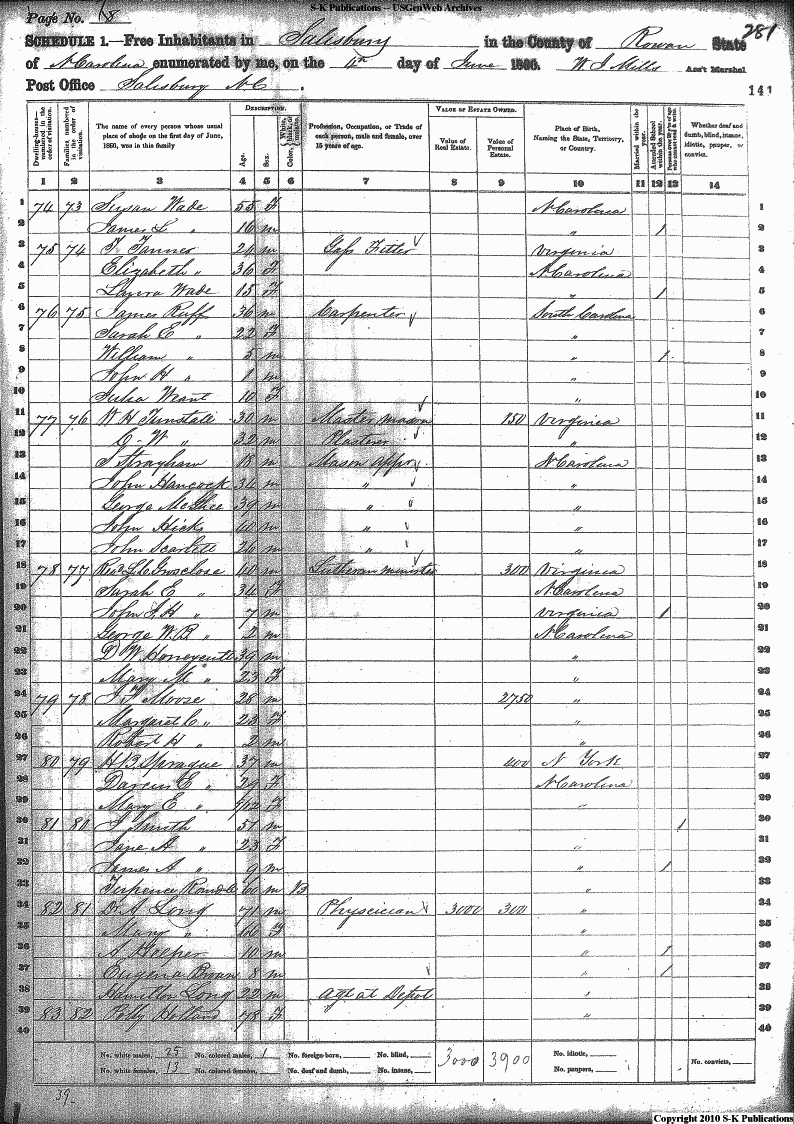 S-K Publications -- USGenWeb Archives
Page No. 68
281
SCHEDULE 1.—Free Inhabitants in Salisbury in the County of Rowan State
of N Carolina enumerated by me, on the 4th day of June 1860. W J Mills Ass't Marshal
Post Office Salisbury N C.
141
Dwelling-houses—numbered in the order of visitation.
Families numbered in the order of visitation.
The name of every person whose usual place of abode on the first day of June, 1860, was in this family
DESCRIPTION.
Age.
Sex.
Color, White, black, or mulatto.
Profession, Occupation, or Trade of each person, male and female, over 15 years of age.
VALUE OF ESTATE OWNED.
Value of Real Estate.
Value of Personal Estate.
Place of Birth, Naming the State, Territory, or Country.
Married within the year.
Attended School within the year.
Persons over 20 y'rs of age who cannot read & write.
Whether deaf and dumb, blind, insane, idiotic, pauper, or convict.
1 2 3 4 5 6 7 8 9 10 11 12 13 14
1 74 73 Susan Wade 55 F N Carolina 1
2 James L " 16 m " 1 2
3 75 74 T. Tanner 24 m Gass Fitter Virginia 3
4 Elizabeth " 36 F N Carolina 4
5 Wade 15 F " 1 5
6 76 75 James Ruff 36 m Carpenter South Carolina 6
7 Sarah E " 22 F " 7
8 William " 5 m " 1 8
9 John H " 1 m " 9
10 Julia Want 10 F " 10
11 77 76 W H Tunstall 30 m Master mason 150 Virginia 11
12 C. W " 32 m Plasterer " 12
13 Strayhan 18 m Mason appr N Carolina 13
14 John Hancock 34 m " " 14
15 George McGhee 39 m " " 15
16 John Hicks 40 m " " 16
17 John Scarlett 26 m " " 17
18 78 77 Revd L C Groseclose 40 m Lutheran minister 300 Virginia 18
19 Sarah E " 34 F N Carolina 19
20 John L H " 7 m Virginia 1 20
21 George W B " 2 m N Carolina 21
22 D W Honeycutt 39 m " 22
23 Mary M " 23 F " 23
24 79 78 Moose 28 m 2750 " 24
25 Margaret C " 23 F " 25
26 Robert H " 2 m " 26
27 80 79 H B Sprague 37 m 400 N York 27
28 Darcus E " 29 F N Carolina 28
29 Mary E " 9/12 F " 29
30 81 80 J Smith 57 m 1 30
31 Jane A " 23 F " 31
32 James A " 9 m " 1 32
33 60 m B " 33
34 82 81 Dr A Long 71 m Physcician 3000 300 " 34
35 Mary " 60 F " 35
36 A 10 m " 1 36
37 Eugena Brown 8 m " 1 37
38 Hamilton Long 22 m Agt at Depot " 38
39 83 82 Polly Holland 78 F " 39
40 40
No. white males, 25 No. colored males, 1 No. foreign-born, No. blind, 3000 3900 No. idiotic,
No. white females, 13 No. colored females, No. deaf and dumb, No. insane, No. paupers, No. convicts,
39
Copyright 2010 S-K Publications